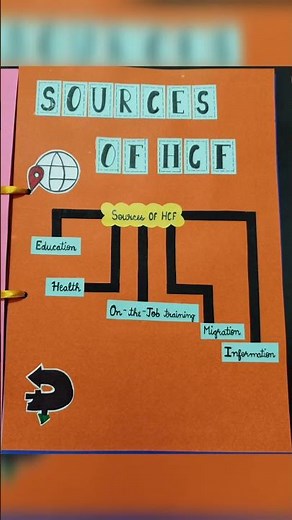 SOURCES
OF HCF
Sources OF HCF
Education
Health
On-the-Job training
Migration
Information